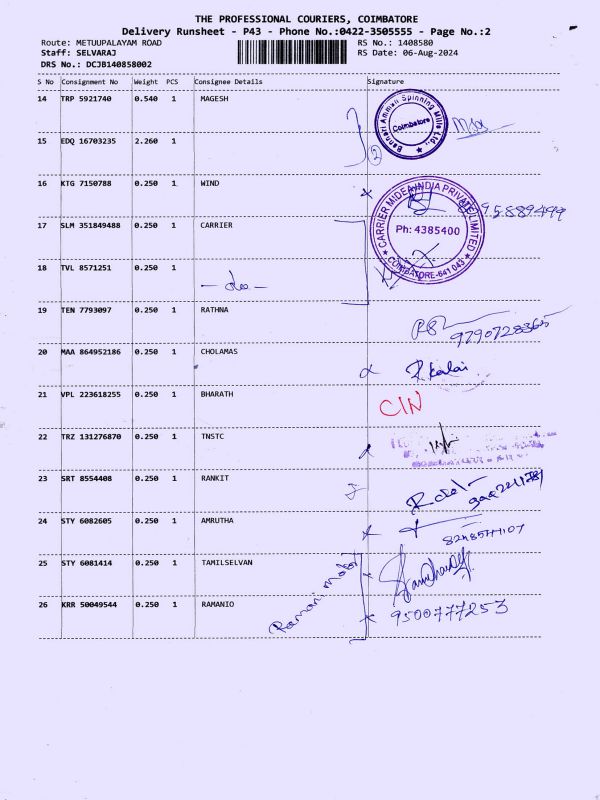 THE PROFESSIONAL COURIERS, COIMBATORE
Delivery Runsheet - P43 - Phone No.:0422-3505555 - Page No.:2
Route: METUUPALAYAM ROAD
RS No.: 1408580
Staff: SELVARAJ
RS Date: 06-Aug-2024
DRS No.: DCJB140858002
S No Consignment No Weight PCS Consignee Details Signature
14 TRP 5921740 0.540 1 MAGESH
Bannari Amman Spinning Mills Ltd.,
Coimbatore
15 EDQ 16703235 2.260 1
2
16 KTG 7150788 0.250 1 WIND
CARRIER MIDEA INDIA PRIVATE LIMITED
Ph: 4385400
COIMBATORE-641 043
17 SLM 351849488 0.250 1 CARRIER
18 TVL 8571251 0.250 1
- do -
19 TEN 7793097 0.250 1 RATHNA
9790728365
20 MAA 864952186 0.250 1 CHOLAMAS
R. Kalai
21 VPL 223618255 0.250 1 BHARATH
CIN
22 TRZ 131276870 0.250 1 TNSTC
23 SRT 8554408 0.250 1 RANKIT
24 STY 6082605 0.250 1 AMRUTHA
25 STY 6081414 0.250 1 TAMILSELVAN
Ramani Motor
26 KRR 50049544 0.250 1 RAMANIO
9500777253